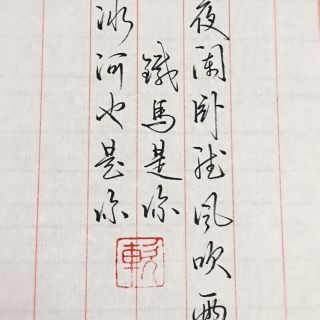 夜阑卧听风吹雨
鐵馬是你
冰河也是你